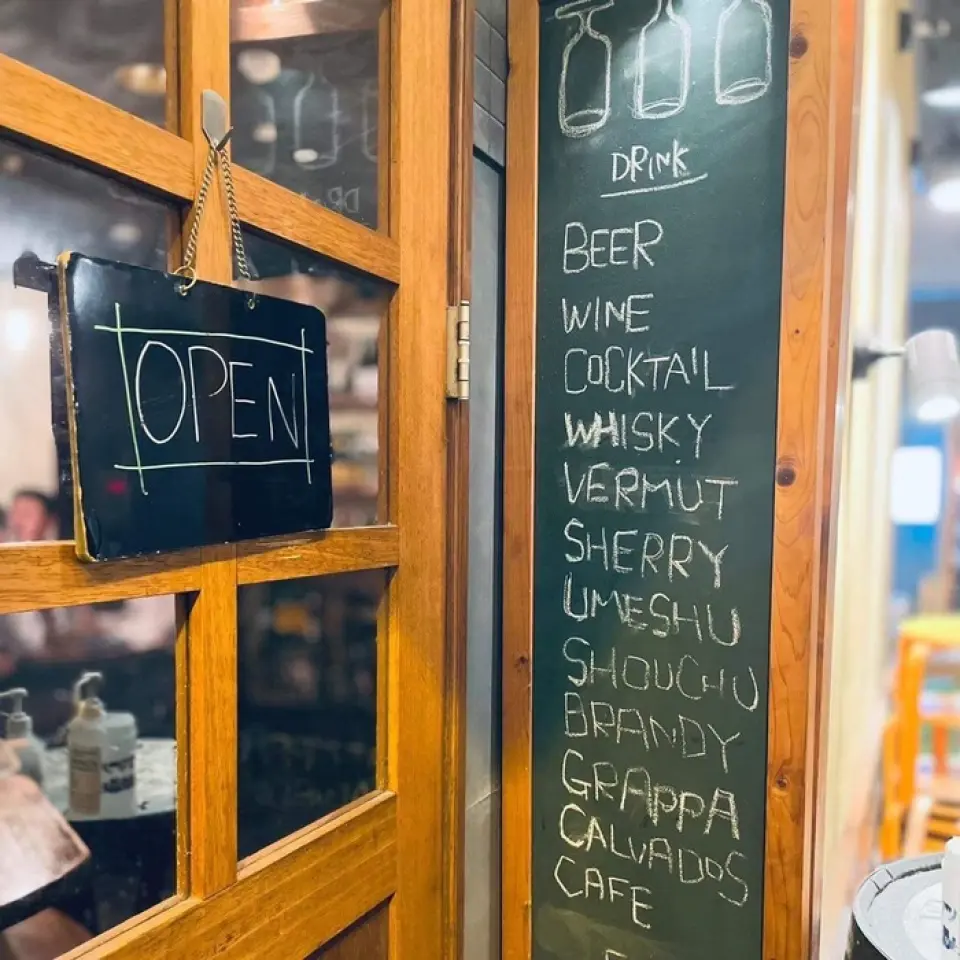 OPEN
DRINK
BEER
WINE
COCKTAIL
WHISKY
VERMUT
SHERRY
UMESHU
SHOUCHU
BRANDY
GRAPPA
CALVADOS
CAFE